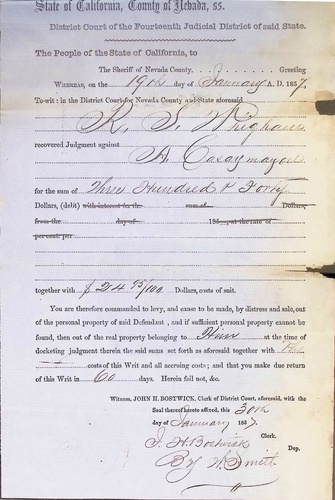 State of California, County of Nevada, ss.
District Court of the Fourteenth Judicial District of said State.
The People of the State of California, to
The Sheriff of Nevada County. Greeting
Whereas, on the 19th day of January A. D. 1857
To-wit: in the District Court for Nevada County and State aforesaid
R. S. Whigham
recovered Judgment against
A. Casaymayou
for the sum of Three Hundred & Forty
Dollars, (debt) with interest for the sum of Dollars,
from the day of 185 , at the rate of
per cent. per
together with $ 24 95/100 Dollars, costs of suit.
You are therefore commanded to levy, and cause to be made, by distress and sale, out
of the personal property of said Defendant , and if sufficient personal property cannot be
found, then out of the real property belonging to Him at the time of
docketing judgment therein the said sums set forth as aforesaid together with
costs of this Writ and all accruing costs; and that you make due
return of this Writ in 60 days. Herein fail not, &c.
Witness, JOHN H. BOSTWICK, Clerk of District Court, aforesaid, with the
Seal thereof hereto affixed, this 30th
day of January 1857.
J. H. Bostwick Clerk.
By W. Smith Dep.